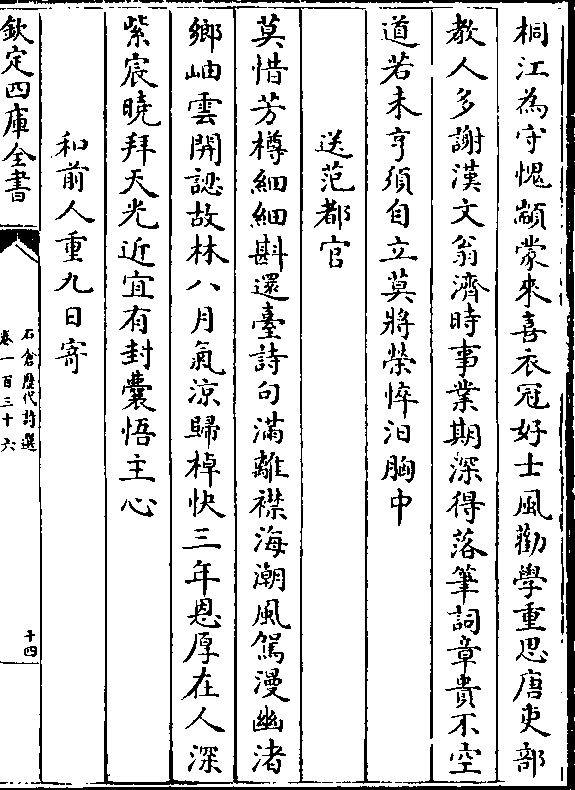 桐江為守愧顓蒙來喜衣冠好士風勸學重思唐吏部
教人多謝漢文翁濟時事業期深得落筆詞章貴不空
道若未亨須自立莫將榮悴汨胸中
送范都官
莫惜芳樽細細斟還臺詩句滿離襟海潮風駕漫幽渚
鄉岫雲開認故林八月氣涼歸棹快三年恩厚在人深
紫宸曉拜天光近宜有封囊悟主心
和前人重九日寄
欽定四庫全書
石倉歷代詩選
卷一百三十六
十四